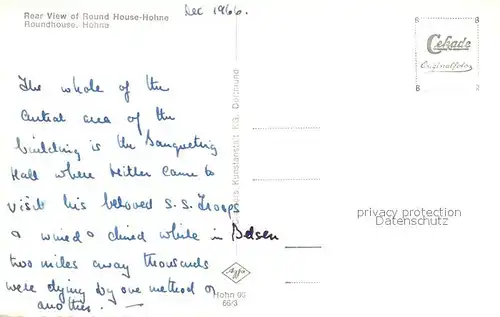 Rear View of Round House-Hohne
Roundhouse, Hohne
Dec 1966.
The whole of the
central area of the
building is the banqueting
Hall where Hitler came to
visit his beloved S.S. Troops
& wined & dined while in Belsen
two miles away thousands
were dying by one method or
another. —
Kunstanstalt KG. Dortmund
Agfa
Hohn 09
66/3
8 8
Cekade
Originalfoto
8 2
privacy protection
Datenschutz